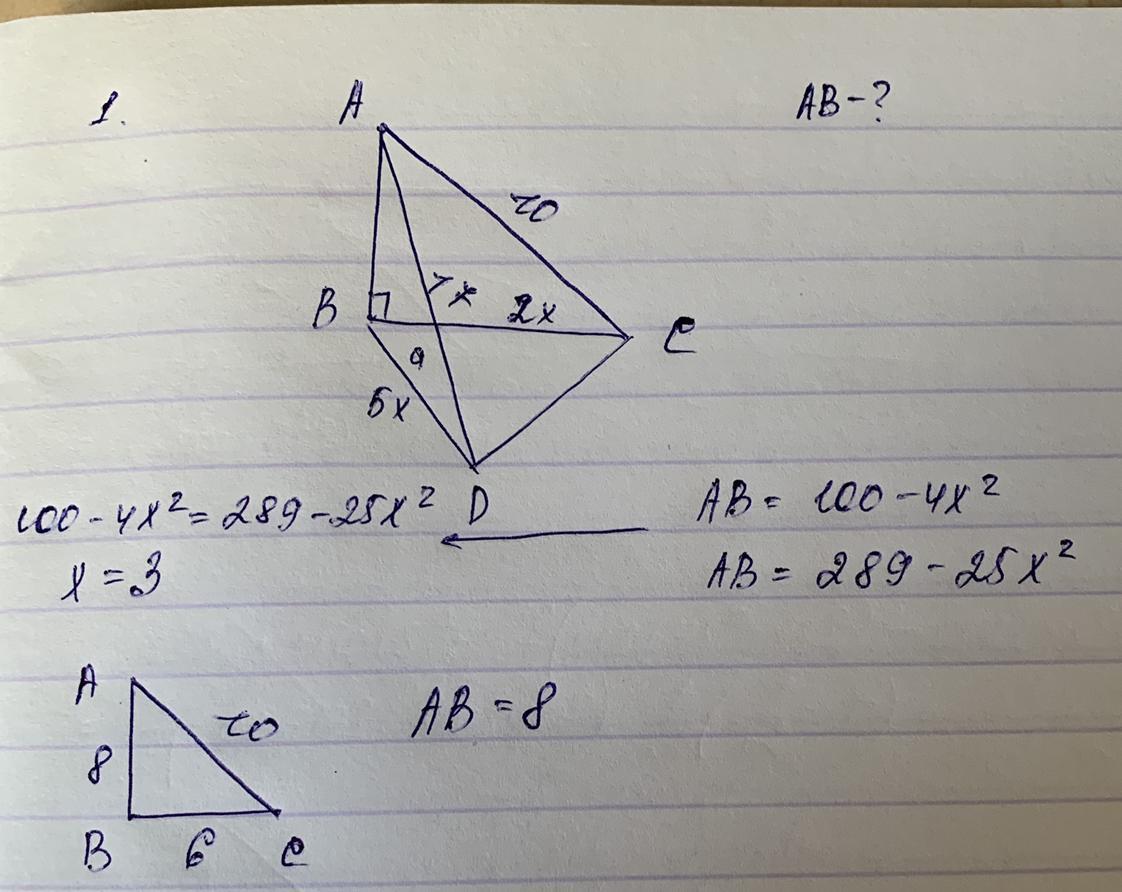 1.
AB-?
A
10
B
2x
C
9
5x
D
100-4x²=289-25x²
x=3
AB=100-4x²
AB=289-25x²
A
10
8
B
6
C
AB=8